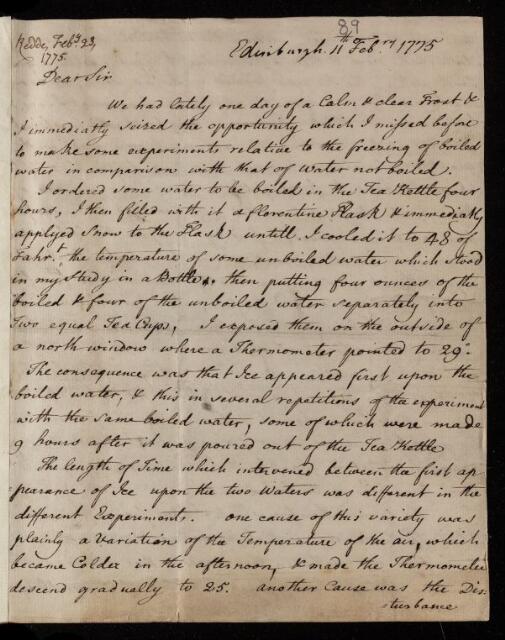 89
Redde, Feby 23,
1775.
Edinburgh. 11th Febry 1775
Dear Sir
We had lately one day of a Calm & clear Frost &
I immediatly seized the opportunity which I missed before
to make some experiments relative to the freezing of boiled
water in comparison with that of water not boiled.
I ordered some water to be boiled in the Tea Kettle four
hours, I then filled with it a florentine Flask & immediatly
applyed Snow to the Flask untill I cooled it to 48 of
Fahrt. the temperature of some unboiled water which stood
in my Study in a Bottle, then putting four ounces of the
boiled & four of the unboiled water separately into
Two equal Tea Cups, I exposed them on the outside of
a north window where a Thermometer pointed to 29°.
The consequence was that Ice appeared first upon the
boiled water, & this in several repetitions of the experiment
with the same boiled water, some of which were made
9 hours after it was poured out of the Tea Kettle
The length of Time which intervened between the first ap
pearance of Ice upon the two Waters was different in the
different Experiments. one cause of this variety was
plainly a Variation of the Temperature of the air, which
became Colder in the afternoon, & made the Thermometer
descend gradually to 25. another Cause was the Dis-
turbance